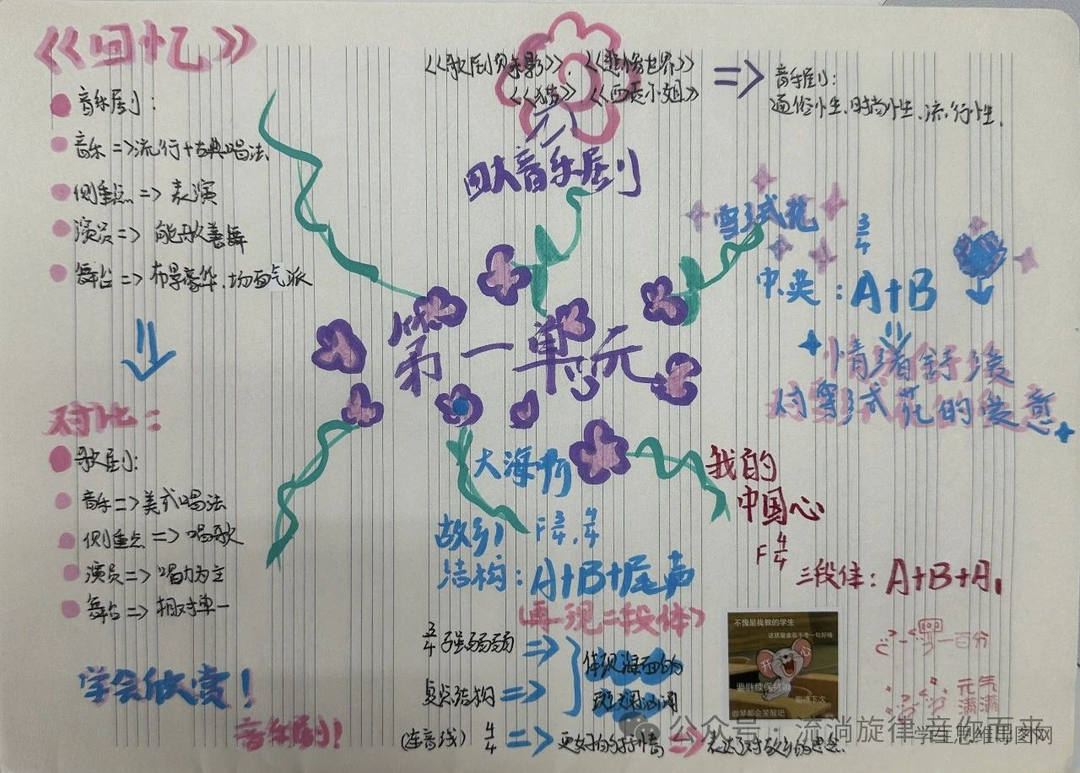 《回忆》
音乐剧：
音乐=>流行+古典唱法
侧重点=>表演
演员=>能歌善舞
舞台=>布景豪华、场面气派
对比：
歌剧：
音乐=>美式唱法
侧重点=>唱歌
演员=>唱功为主
舞台=>相对单一
学会欣赏！
音乐剧！
《歌剧魅影》、《悲惨世界》
《猫》《西贡小姐》
=>音乐剧：
通俗性、时尚性、流行性.
四大音乐剧
第一单元
雪绒花
3/4
中、英：A+B
情绪舒缓
对雪绒花的
大海啊
故乡 F 3/4、4/4
结构：A+B+尾声
（再现二段体）
3/4 强弱弱=>
=>
体现海面的
(连音线) 4/4 => 更好的抒情 => 表达了对故乡的思念.
我的
中国心
F 4/4
三段体：A+B+A1
不愧是我教的学生
开心
要继续保持哦
做梦都会笑醒吧
一百分
元气
满满
公众号：流淌旋律 音你而来
学生思维导图网